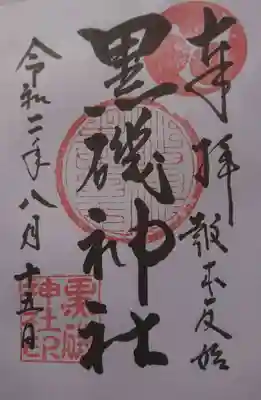 奉拝 報本反始
黒磯神社
令和二年八月十五日
黒磯
神社
之印